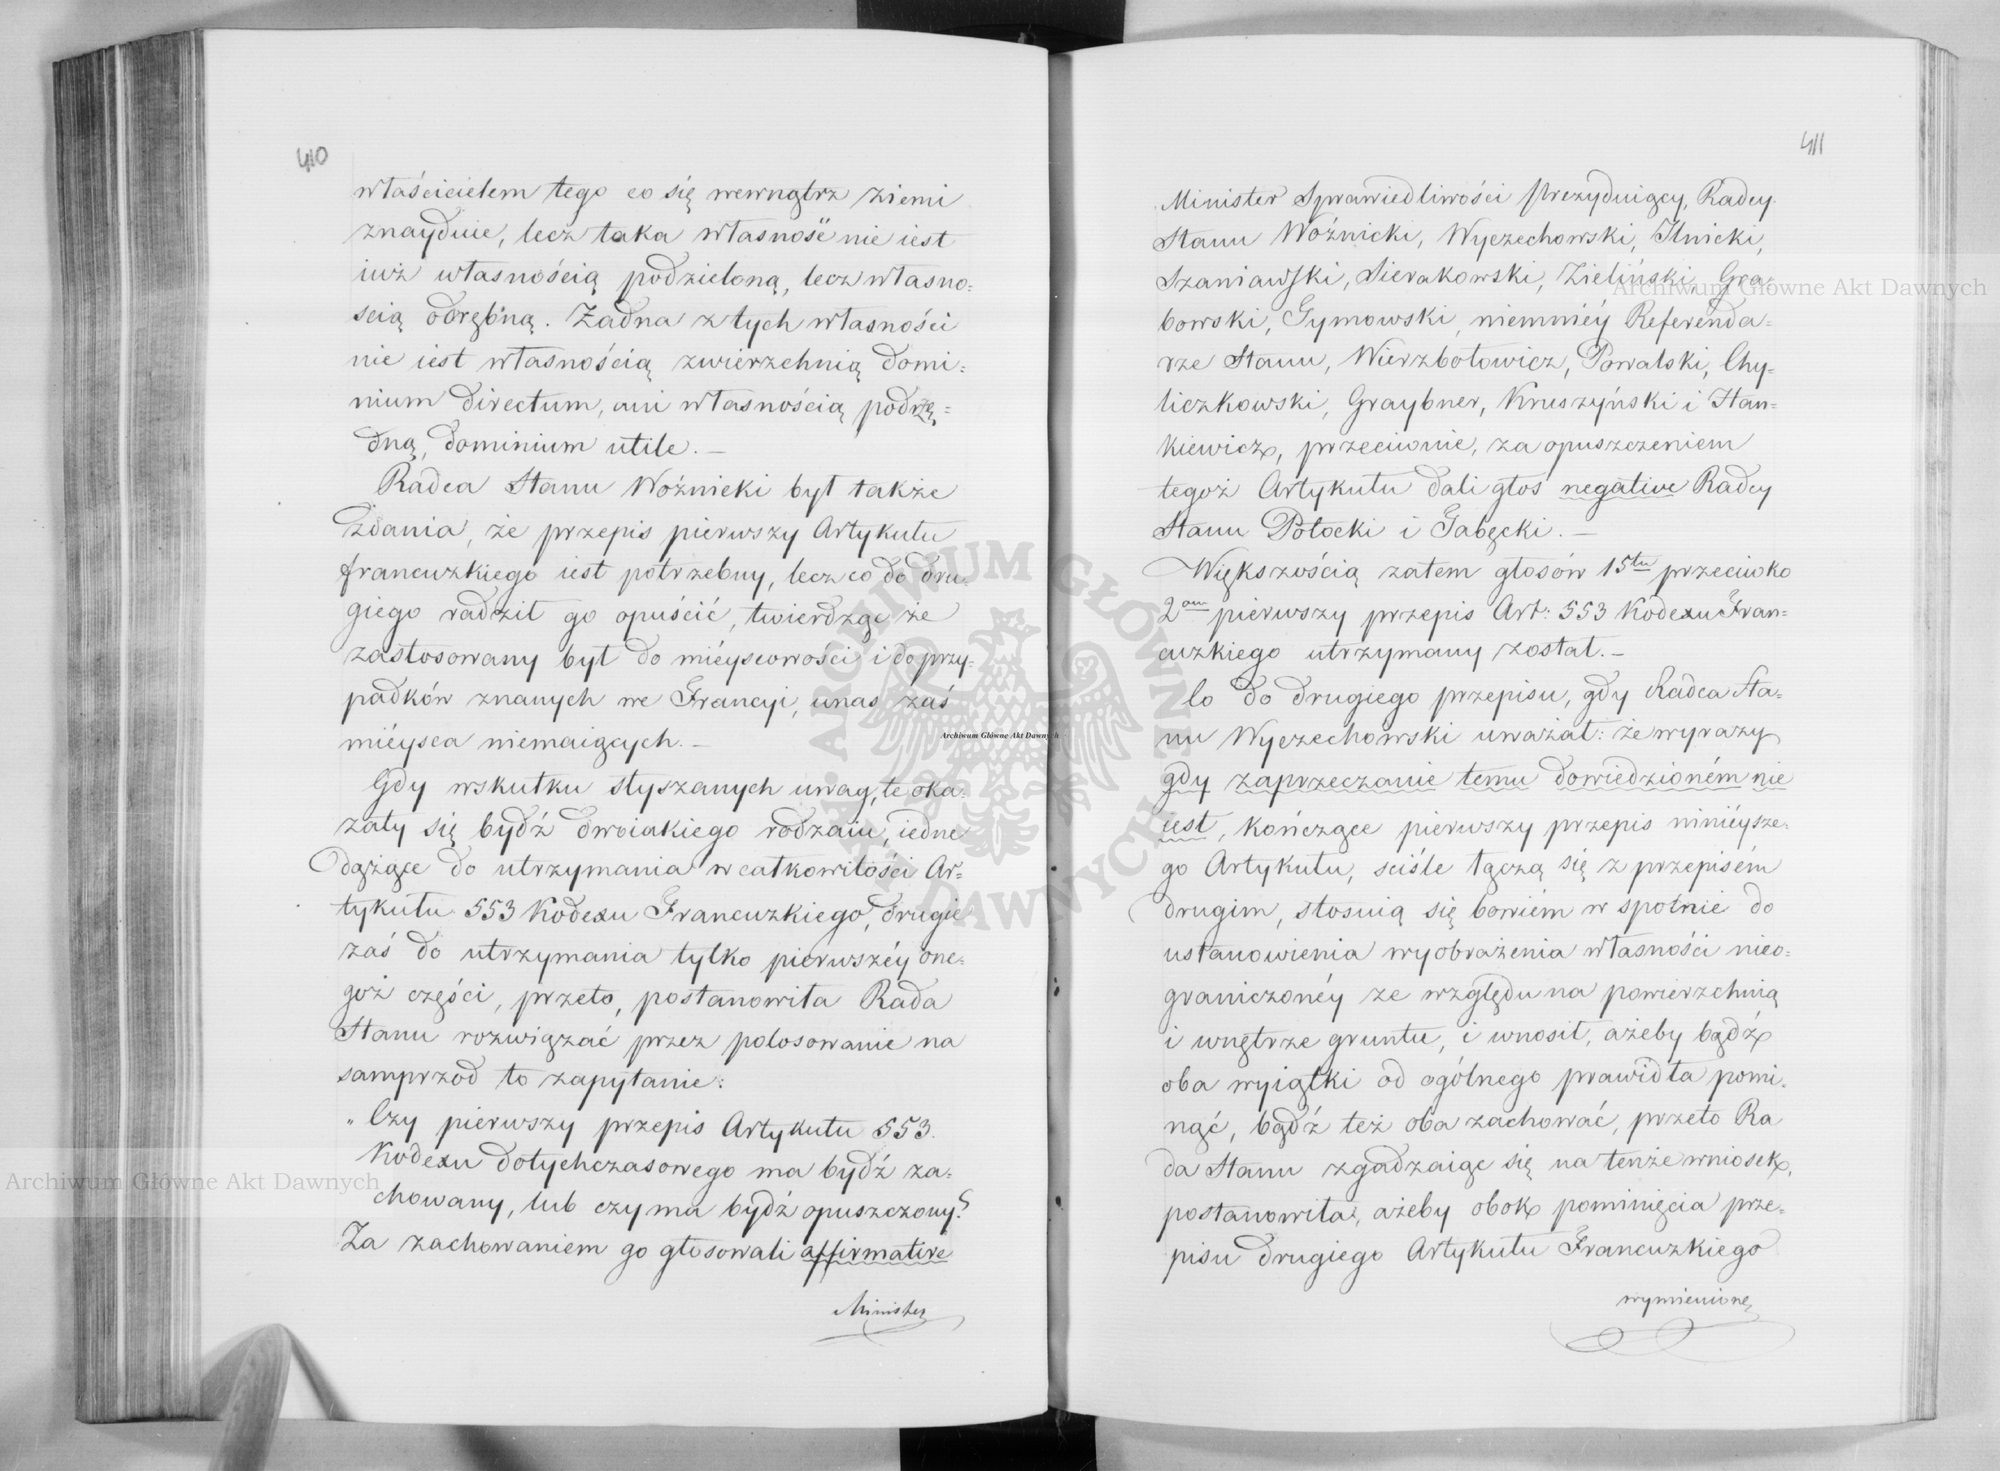 410
właścicielem tego co się wewnątrz ziemi
znayduie, lecz taka własność nie iest
iuż własnością podzieloną, lecz własno=
scią odrębną. Żadna z tych własności
nie iest własnością zwierzchnią domi=
nium directum, ani własnością podrzę=
dną, dominium utile. —
Radca Stanu Woźnicki był także
zdania, że przepis pierwszy Artykułu
francuzkiego iest potrzebny, lecz co do dru=
giego radził go opuścić, twierdząc że
zastosowany był do mieyscowości i do przy=
padków znanych we Francyi, unas zaś
mieysca niemaiących. —
Gdy wskutku słyszanych uwag, te oka=
zały się bydź dwoiakiego rodzaiu, iedne
dążące do utrzymania w całkowitości Ar=
tykułu 553 Kodexu Francuzkiego, drugie
zaś do utrzymania tylko pierwszéy one=
goż części, przeto, postanowiła Rada
Stanu rozwiązać przez polosowanie na
samprzod to zapytanie:
„Czy pierwszy przepis Artykułu 553.
Kodexu dotychczasowego ma bydź za=
chowany, lub czy ma bydź opuszczony?
Za zachowaniem go głosowali affirmative
Minister
411
Minister Sprawiedliwości Prezyduiący, Radcy
Stanu Woźnicki, Wyczechowski, Ilnicki,
Szaniawski, Sierakowski, Zieliński, Gra=
bowski, Gymowski, niemniéy Referenda=
rze Stanu, Wierzbołowicz, Powalski, Chy=
liczkowski, Graybner, Kruszyński i Stan=
kiewicz, przeciwnie, za opuszczeniem
tegoż Artykułu dali głos negative Radcy
Stanu Potocki i Gąbęcki. —
Większością zatem głosów 15tu przeciwko
2om pierwszy przepis Art: 553 Kodexu Fran=
cuzkiego utrzymany został. —
Co do drugiego przepisu, gdy Radca Sta=
nu Wyczechowski uważał: że wyrazy
gdy zaprzeczanie temu dowiedzioném nie
iest, kończące pierwszy przepis niniéysze=
go Artykułu, sciśle łączą się z przepisém
drugim, stosuią się bowiém w spolnie do
ustanowienia wyobrażenia własności nieo=
graniczonéy ze względu na powierzchnią
i wnętrze gruntu, i wnosił, ażeby bądź
oba wyiątki od ogólnego prawidła pomi=
nąć, bądź też oba zachować, przeto Ra
da Stanu zgadzaiąc się na tenże wniosek,
postanowiła, ażeby obok pominięcia prze=
pisu drugiego Artykułu Francuzkiego
wymienione
Archiwum Główne Akt Dawnych
Archiwum Główne Akt Dawnych
Archiwum Główne Akt Dawnych
ARCHIWUM GŁÓWNE AKT DAWNYCH